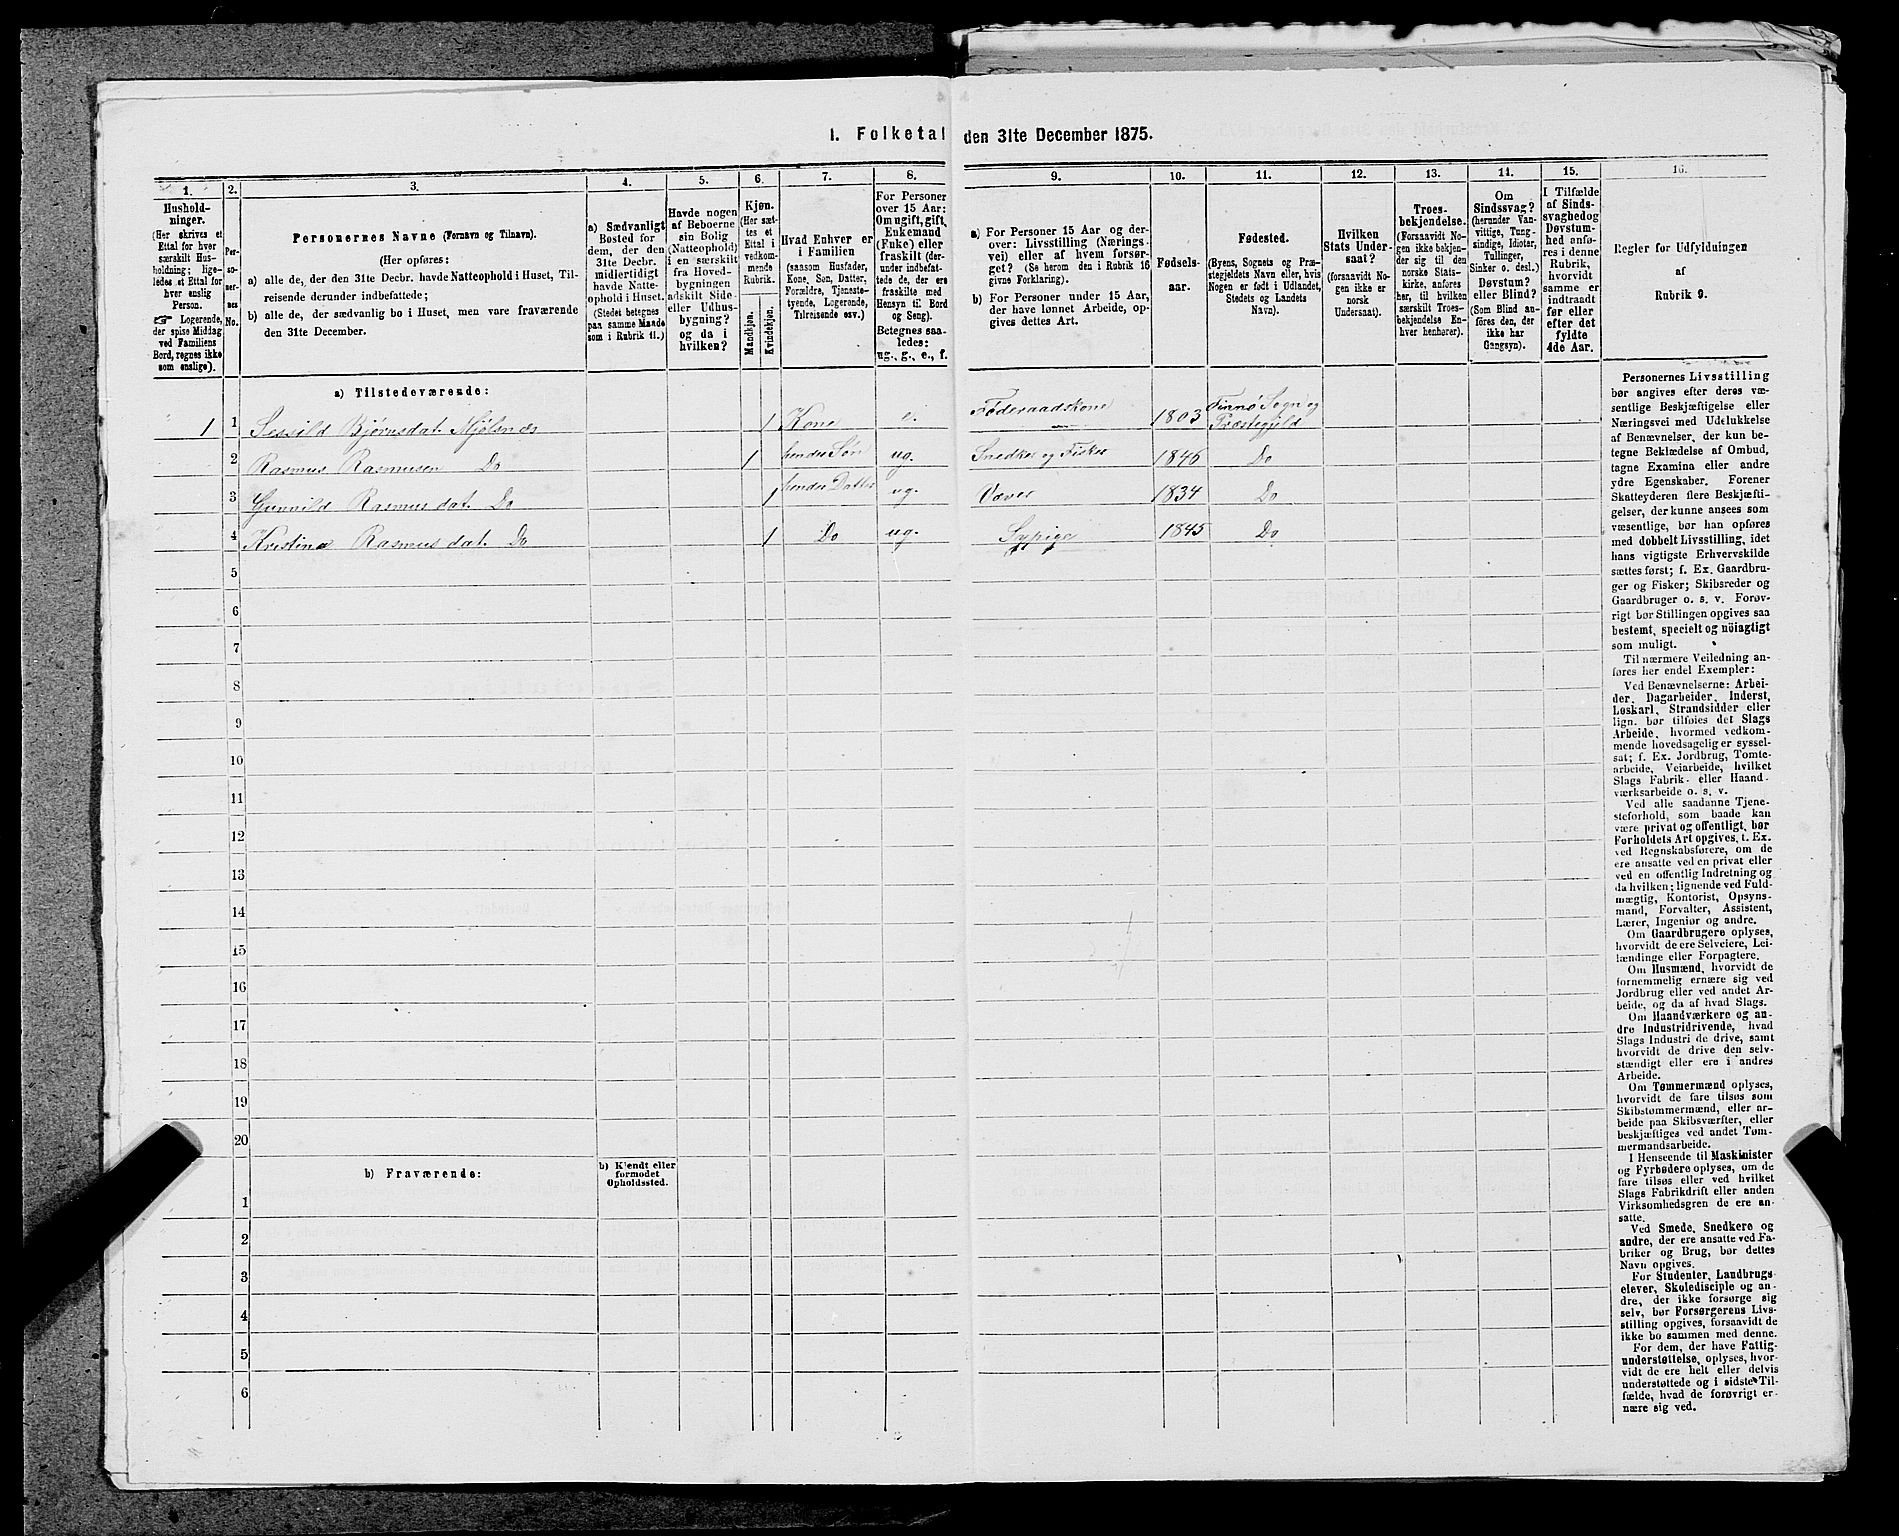 I. Folketal den 31te December 1875.
1.
Hushold-
ninger.
(Her skrives et
Ettal for hver
særskilt Hus-
holdning; lige-
ledes et Ettal for
hver enslig
Person.
☞ Logerende,
der spise Middag
ved Familiens
Bord, regnes ikke
som enslige).
2.
Per-
so-
ner-
nes
No.
3.
Personernes Navne (Fornavn og Tilnavn).
(Her opføres:
a) alle de, der den 31te Decbr. havde Natteophold i Huset, Til-
reisende derunder indbefattede;
b) alle de, der sædvanlig bo i Huset, men vare fraværende
den 31te December.
4.
a) Sædvanligt
Bosted for
dem, der den
31te Decbr.
midlertidigt
havde Natte-
ophold i Huset.
(Stedet betegnes
paa samme Maade
som i Rubrik 11.)
5.
Havde nogen
af Beboerne
sin Bolig
(Natteophold)
i en særskilt
fra Hoved-
bygningen
adskilt Side-
eller Udhus-
bygning?
og da i
hvilken?
6.
Kjøn.
(Her sæt-
tes et
Ettal i
vedkom-
mende
Rubrik.
Mandkjøn.
Kvindekjøn.
7.
Hvad Enhver er
i Familien
(saasom Husfader,
Kone, Søn, Datter,
Forældre, Tjeneste-
tyende, Logerende,
Tilreisende osv.)
8.
For Personer
over 15 Aar:
Om ugift, gift,
Enkemand
(Enke) eller
fraskilt (der-
under indbefat-
tede de, der ere
fraskilte med
Hensyn til Bord
og Seng).
Betegnes saa-
ledes:
ug., g., e., f.
9.
a) For Personer 15 Aar og der-
over: Livsstilling (Nærings-
vei) eller af hvem forsør-
get? (Se herom den i Rubrik 16
givne Forklaring).
b) For Personer under 15 Aar,
der have lønnet Arbeide, op-
gives dettes Art.
10.
Fødsels-
aar.
11.
Fødested.
(Byens, Sognets og Præ-
stegjeldets Navn eller, hvis
Nogen er født i Udlandet,
Stedets og Landets
Navn).
12.
Hvilken
Stats Under-
saat?
(forsaavidt No-
gen ikke er
norsk
Undersaat).
13.
Troes-
bekjendelse.
(Forsaavidt No-
gen ikke bekjen-
der sig til den
norske Stats-
kirke, anføres
her, til hvilken
særskilt Troes-
bekjendelse En-
hver henhører).
14.
Om
Sindssvag?
(herunder Van-
vittige, Tung-
sindige, Idioter,
Tullinger,
Sinker o. desl.)
Døvstum?
eller Blind?
(Som Blind an-
føres den, der
ikke har
Gangsyn).
15.
I Tilfælde
af Sinds-
svaghed og
Døvstum-
hed anfø-
res i denne
Rubrik,
hvorvidt
samme er
indtraadt
før eller
efter det
fyldte
4de Aar.
16.
Regler for Udfyldningen
af
Rubrik 9.
a) Tilstedeværende:
1 1 Sessild Bjørnsdat. Mjølsnæs 1 Kone e. Føderaadskone 1803 Finnø Sogn og Præstegjeld
2 Rasmus Rasmusen Do 1 hendes Søn ug. Snedker og Fisker 1846 Do
3 Gunnild Rasmusdat. Do 1 hendes Datter ug. Væver 1834 Do
4 Kristina Rasmusdat. Do 1 Do ug. Sypige 1845 Do
5
6
7
8
9
10
11
12
13
14
15
16
17
18
19
20
b) Fraværende:
b) Kjendt eller
formodet
Opholdssted.
1
2
3
4
5
6
Personernes Livsstilling
bør angives efter deres væ-
sentlige Beskjæftigelse eller
Næringsvei med Udelukkelse
af Benævnelser, der kun be-
tegne Beklædelse af Ombud,
tagne Examina eller andre
ydre Egenskaber. Forener
Skatteyderen flere Beskjæfti-
gelser, der kunne ansees som
væsentlige, bør han opføres
med dobbelt Livsstilling, idet
hans vigtigste Erhvervskilde
sættes først; f. Ex. Gaardbru-
ger og Fisker; Skibsreder og
Gaardbruger o. s. v. Forøv-
rigt bør Stillingen opgives saa
bestemt, specielt og nöiagtigt
som muligt.
Til nærmere Veiledning an-
føres her endel Exempler:
Ved Benævnelserne: Arbei-
der, Dagarbeider, Inderst,
Løskarl, Strandsidder eller
lign. bør tilføies det Slags
Arbeide, hvormed vedkom-
mende hovedsagelig er syssel-
sat; f. Ex. Jordbrug, Tomte-
arbeide, Veiarbeide, hvilket
Slags Fabrik- eller Haand-
værksarbeide o. s. v.
Ved alle saadanne Tjene-
steforhold, som baade kan
være privat og offentligt, bør
Forholdets Art opgives, t. Ex.
ved Regnskabsførere, om de
ere ansatte ved en privat eller
ved en offentlig Indretning og
da hvilken; lignende ved Fuld-
mægtig, Kontorist, Opsyns-
mand, Forvalter, Assistent,
Lærer, Ingeniør og andre.
Om Gaardbrugere oplyses,
hvorvidt de ere Selveiere, Lei-
lændinge eller Forpagtere.
Om Husmænd, hvorvidt de
fornemmelig ernære sig ved
Jordbrug eller ved andet Ar-
beide, og da af hvad Slags.
Om Haandværkere og an-
dre Industridrivende, hvad
Slags Industri de drive, samt
hvorvidt de drive den selv-
stændigt eller ere i andres
Arbeide.
Om Tømmermænd oplyses,
hvorvidt de fare tilsøs som
Skibstømmermænd, eller ar-
beide paa Skibsværfter, eller
beskjæftiges ved andet Tøm-
mermandsarbeide.
I Henseende til Maskinister
og Fyrbødere oplyses, om de
fare tilsøs eller ved hvilket
Slags Fabrikdrift eller anden
Virksomhedsgren de ere an-
satte.
Ved Smede, Snedkere og
andre, der ere ansatte ved Fa-
briker og Brug, bør dettes
Navn opgives.
For Studenter, Landbrugs-
elever, Skoledisciple og an-
dre, der ikke forsørge sig
selv, bør Forsørgerens Livs-
stilling opgives, forsaavidt de
ikke bo sammen med denne.
For dem, der have Fattig-
understøttelse, oplyses, hvor-
vidt de ere helt eller delvis
understøttede og i sidste Til-
fælde, hvad de forøvrigt er-
nære sig ved.